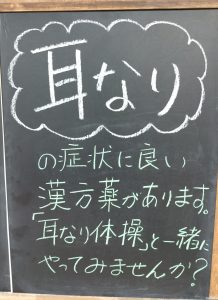 耳なり
の症状に良い
漢方薬があります。
「耳なり体操」と一緒に
やってみませんか?